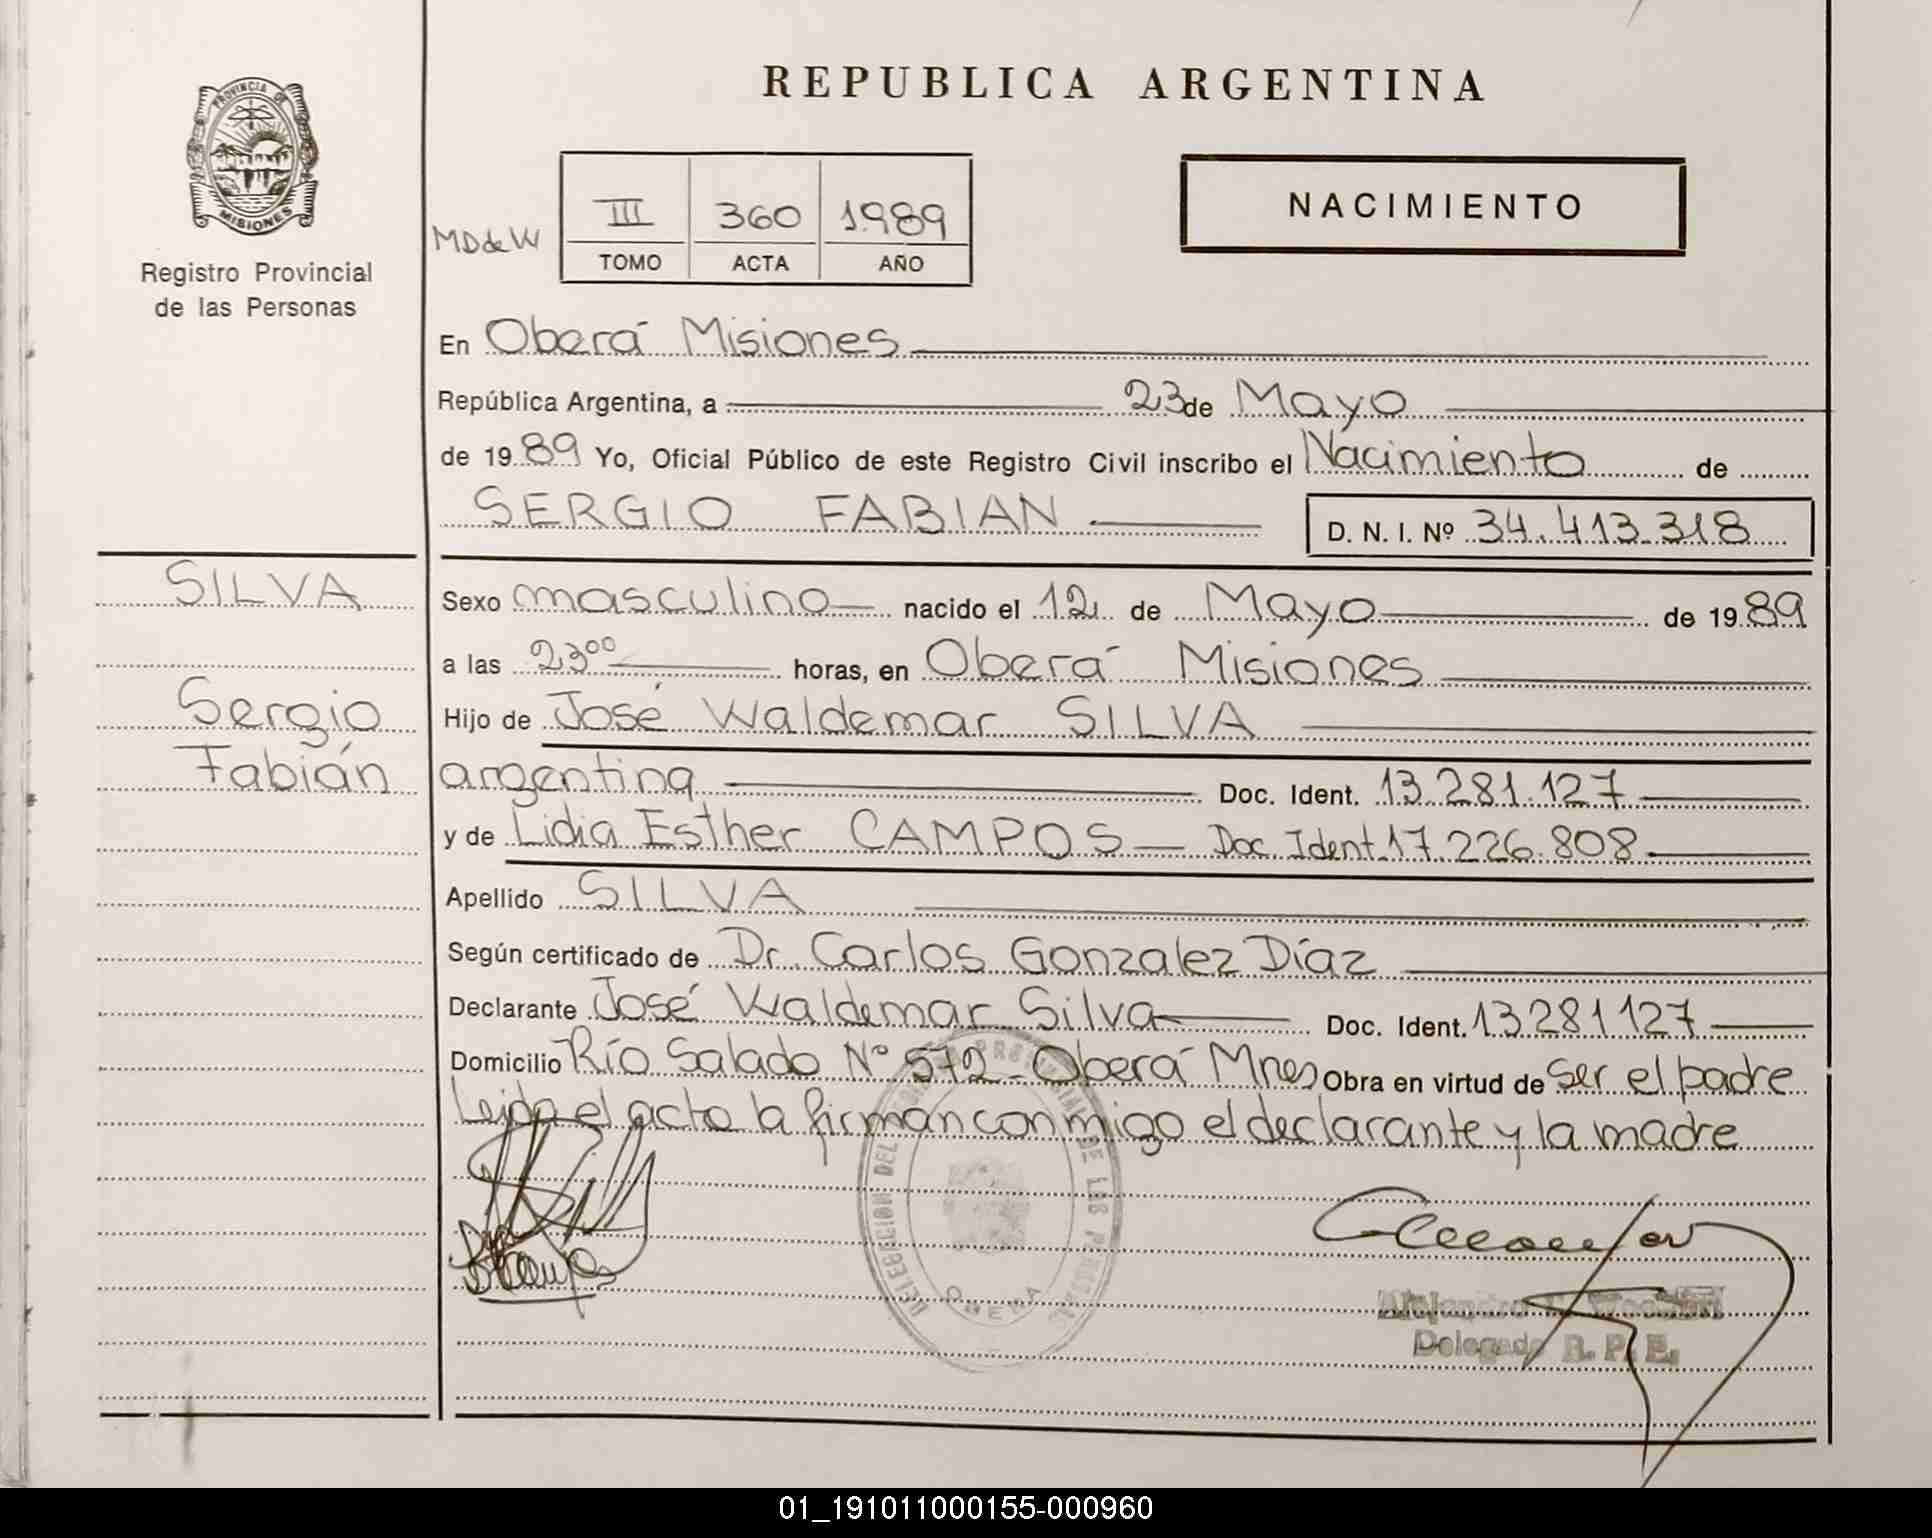 REPUBLICA ARGENTINA
PROVINCIA DE
MISIONES
Registro Provincial
de las Personas
NACIMIENTO
MD de W
III 360 1.989
TOMO ACTA AÑO
En Oberá Misiones
República Argentina, a 23 de Mayo
de 19 89 Yo, Oficial Público de este Registro Civil inscribo el Nacimiento de
SERGIO FABIAN D. N. I. Nº 34.413.318
SILVA
Sergio
Fabián
Sexo masculino nacido el 12 de Mayo de 19 89
a las 23 00 horas, en Oberá Misiones
Hijo de José Waldemar SILVA
argentina Doc. Ident. 13.281.127
y de Lidia Esther CAMPOS Doc. Ident. 17.226.808
Apellido SILVA
Según certificado de Dr. Carlos Gonzalez Díaz
Declarante José Waldemar Silva Doc. Ident. 13.281.127
Domicilio Río Salado Nº 572 - Oberá Mnes Obra en virtud de ser el padre
Leida el acta la firman conmigo el declarante y la madre
DELEGACION DEL PROVINCIAL DE LAS PERSONAS
OBERA
Alejandro
Delegado R. P. E.
01_191011000155-000960